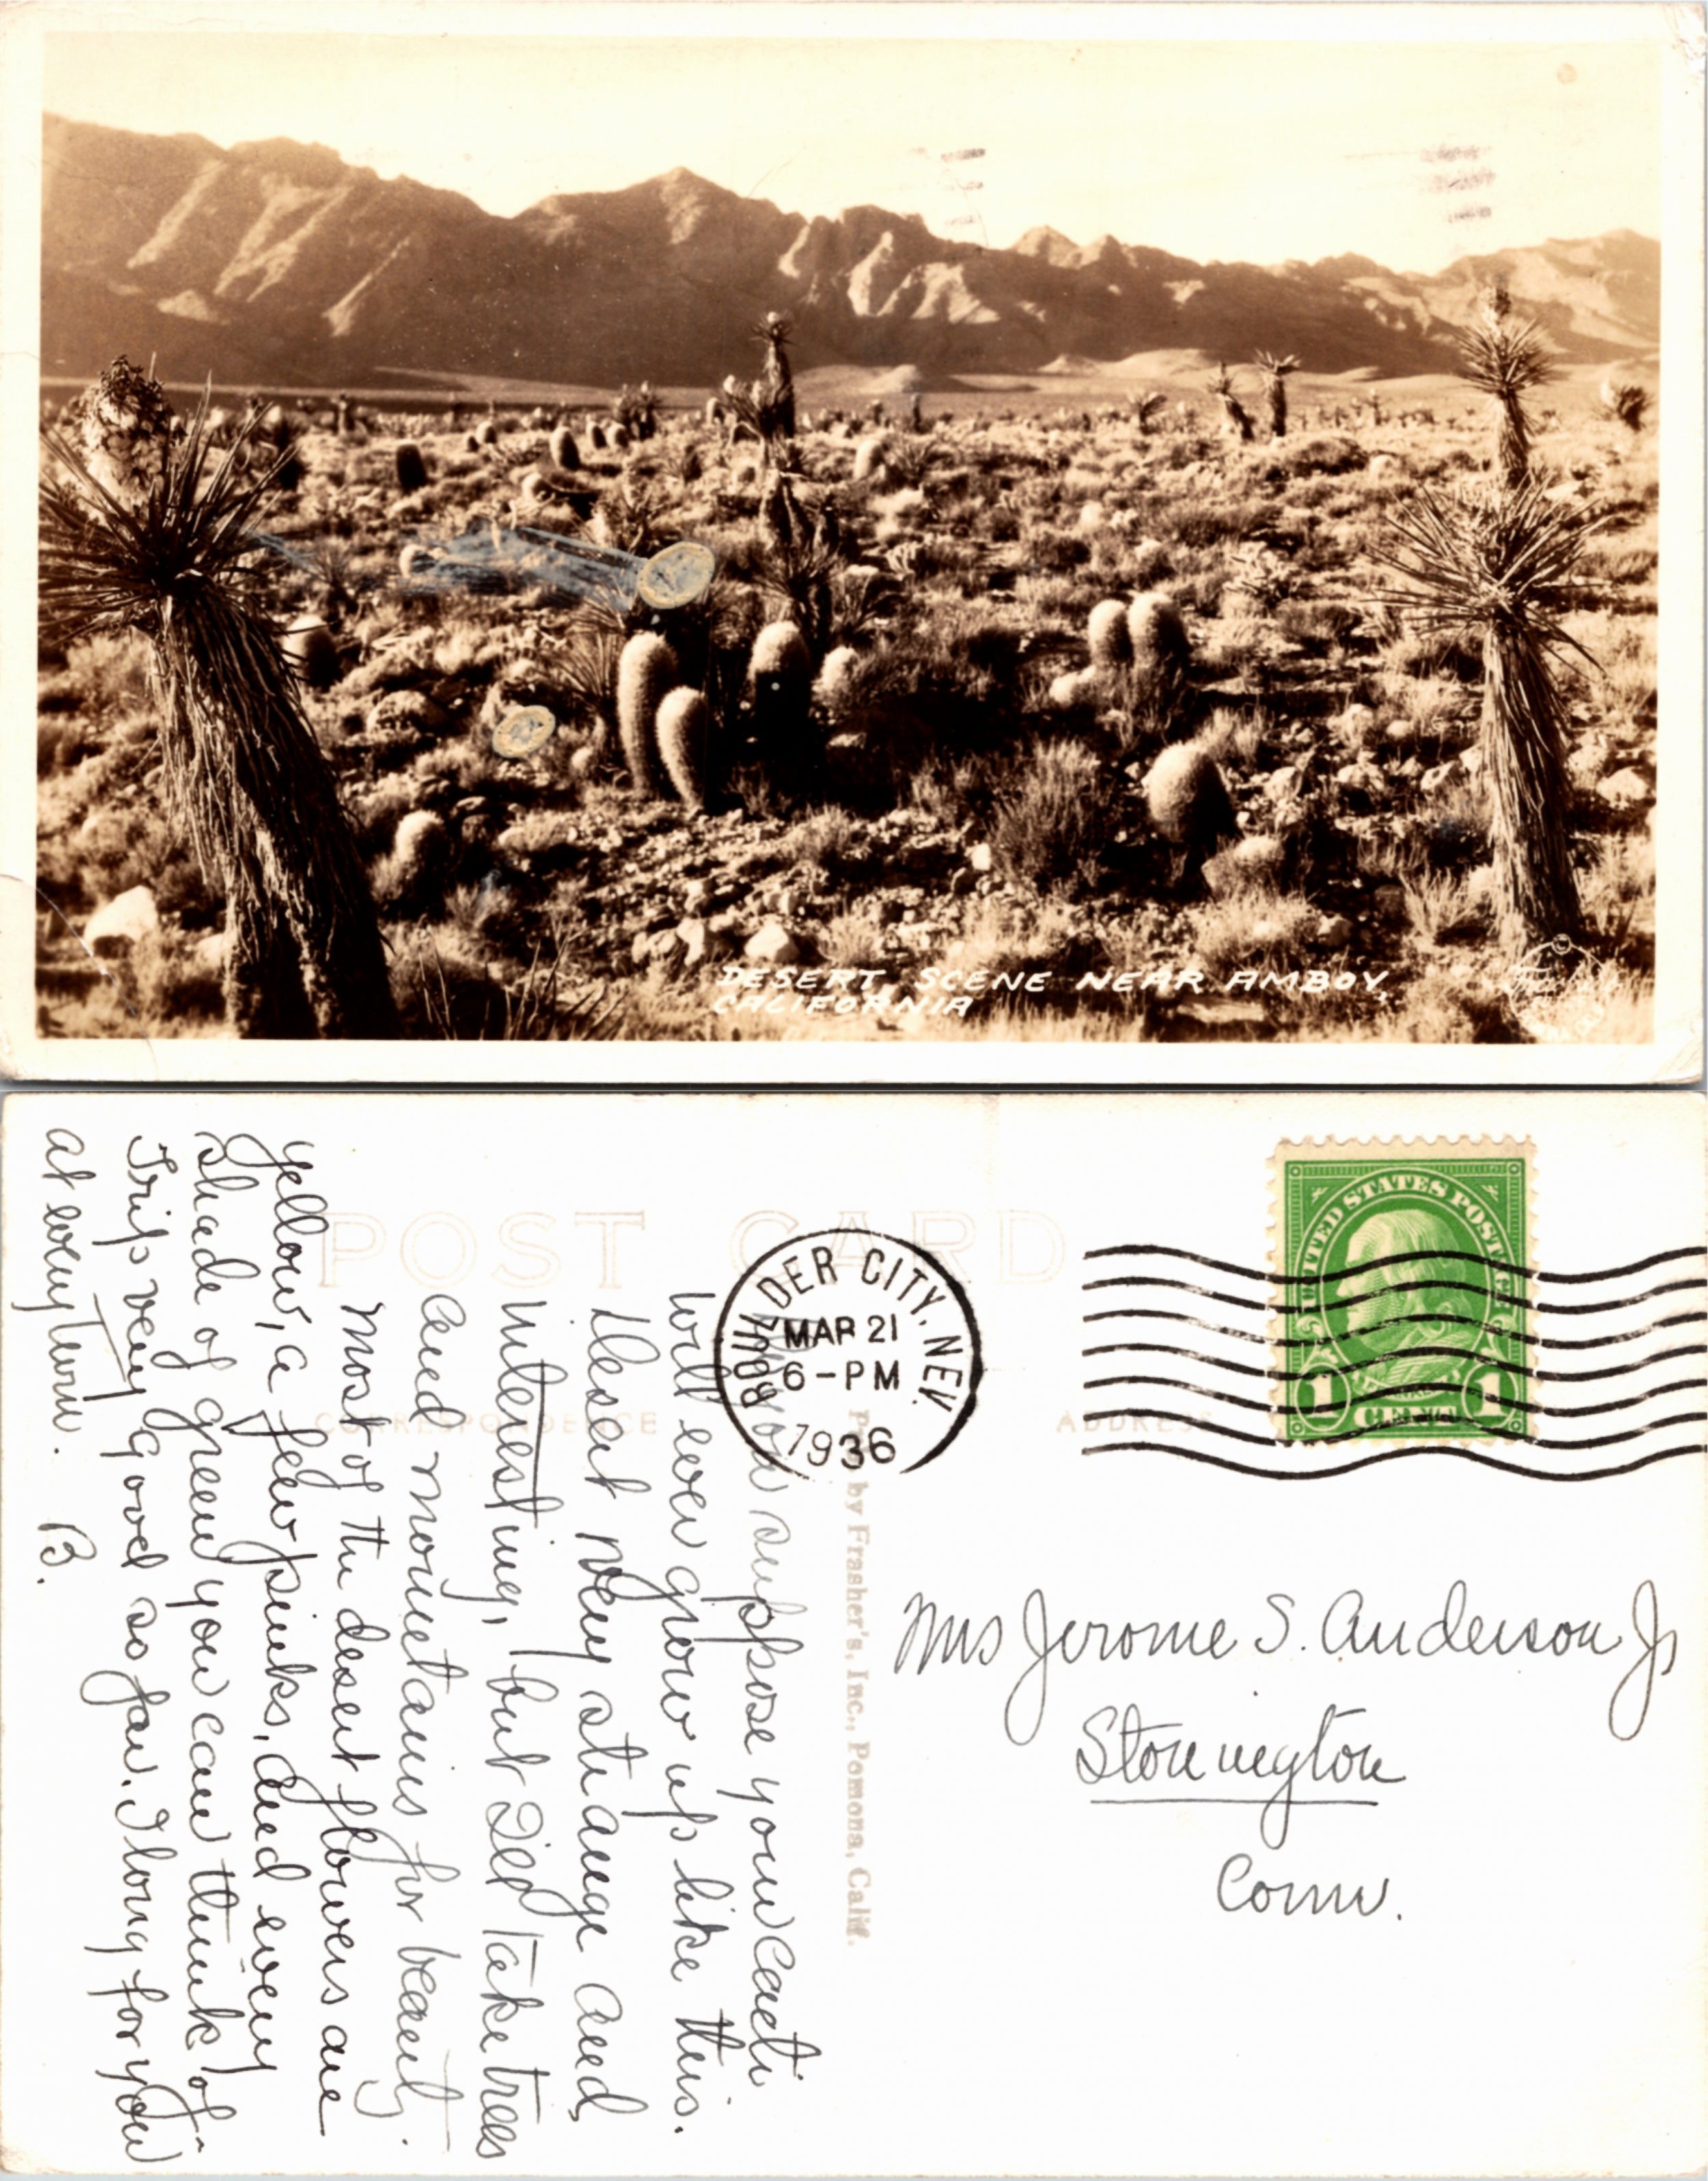 DESERT SCENE NEAR AMBOY,
CALIFORNIA
POST CARD
CORRESPONDENCE
ADDRESS
BOULDER CITY, NEV.
MAR 21
6-PM
1936
UNITED STATES POSTAGE
1 CENT 1
by Frasher's, Inc., Pomona, Calif.
you suppose your cacti
will ever grow up like this.
Desert very strange and
interesting, but I'll take trees
and mountains for beauty.
Most of the desert flowers are
yellow, a few pinks, and every
shade of green you can think of.
Trip very good so far. I long for you
at every turn. B.
Mrs Jerome S. Anderson Jr
Stonington
Conn.